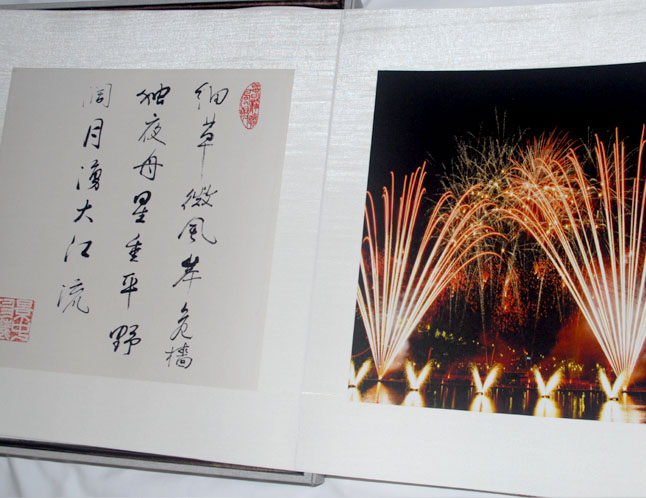 细草微风岸危樯
独夜舟星垂平野
阔月涌大江流